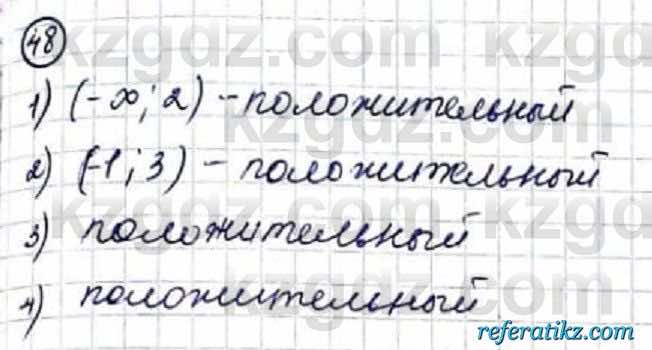 48
1) (-∞; 2) - положительный
2) (-1; 3) - положительный
3) положительный
4) положительный
referatikz.com